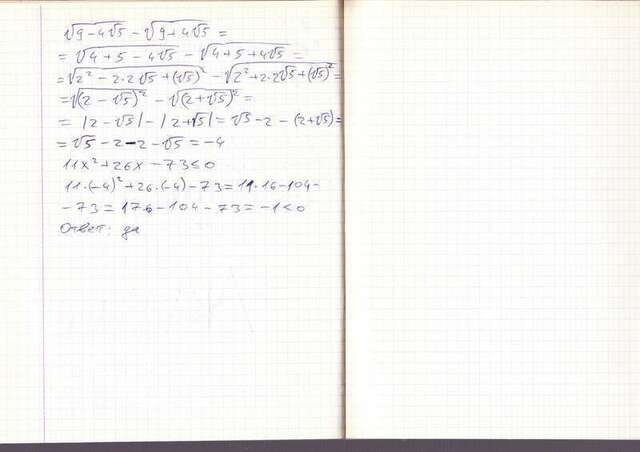 √9-4√5 - √9+4√5 =
= √4+5-4√5 - √4+5+4√5 =
= √2²-2·2√5+(√5)² - √2²+2·2√5+(√5)² =
= √(2-√5)² - √(2+√5)² =
= |2-√5| - |2+√5| = √5-2-(2+√5) =
= √5-2-2-√5 = -4
11x²+26x-73≤0
11·(-4)²+26·(-4)-73=11·16-104-
-73=176-104-73=-1<0
Ответ: да